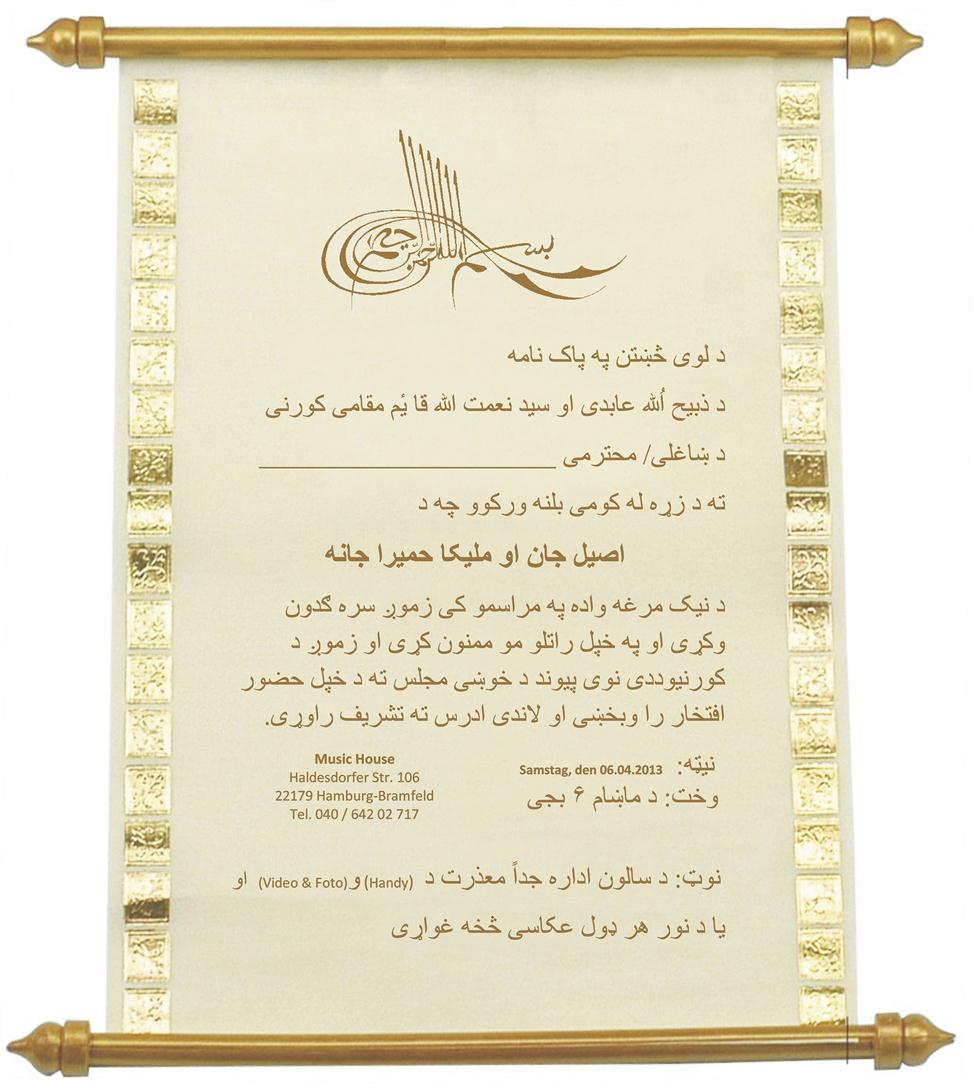 بسم الله الرحمن الرحيم
د لوی څښتن په پاک نامه
د ذبیح اُلله عابدی او سید نعمت الله قا یُم مقامی کورنی
د ښاغلی/ محترمی ____________________
ته د زړه له کومی بلنه ورکوو چه د
اصیل جان او ملیکا حمیرا جانه
د نیک مرغه واده په مراسمو کی زموږ سره ګدون
وکړی او په خپل راتلو مو ممنون کړی او زموږ د
کورنیوددی نوی پیوند د خوښی مجلس ته د خپل حضور
افتخار را وبخښی او لاندی ادرس ته تشریف راوړی.
نیټه: Samstag, den 06.04.2013
وخت: د ماښام ۶ بجی
Music House
Haldesdorfer Str. 106
22179 Hamburg-Bramfeld
Tel. 040 / 642 02 717
نوټ: د سالون اداره جداً معذرت د (Handy) و (Video & Foto) او
یا د نور هر ډول عکاسی څخه غواړی